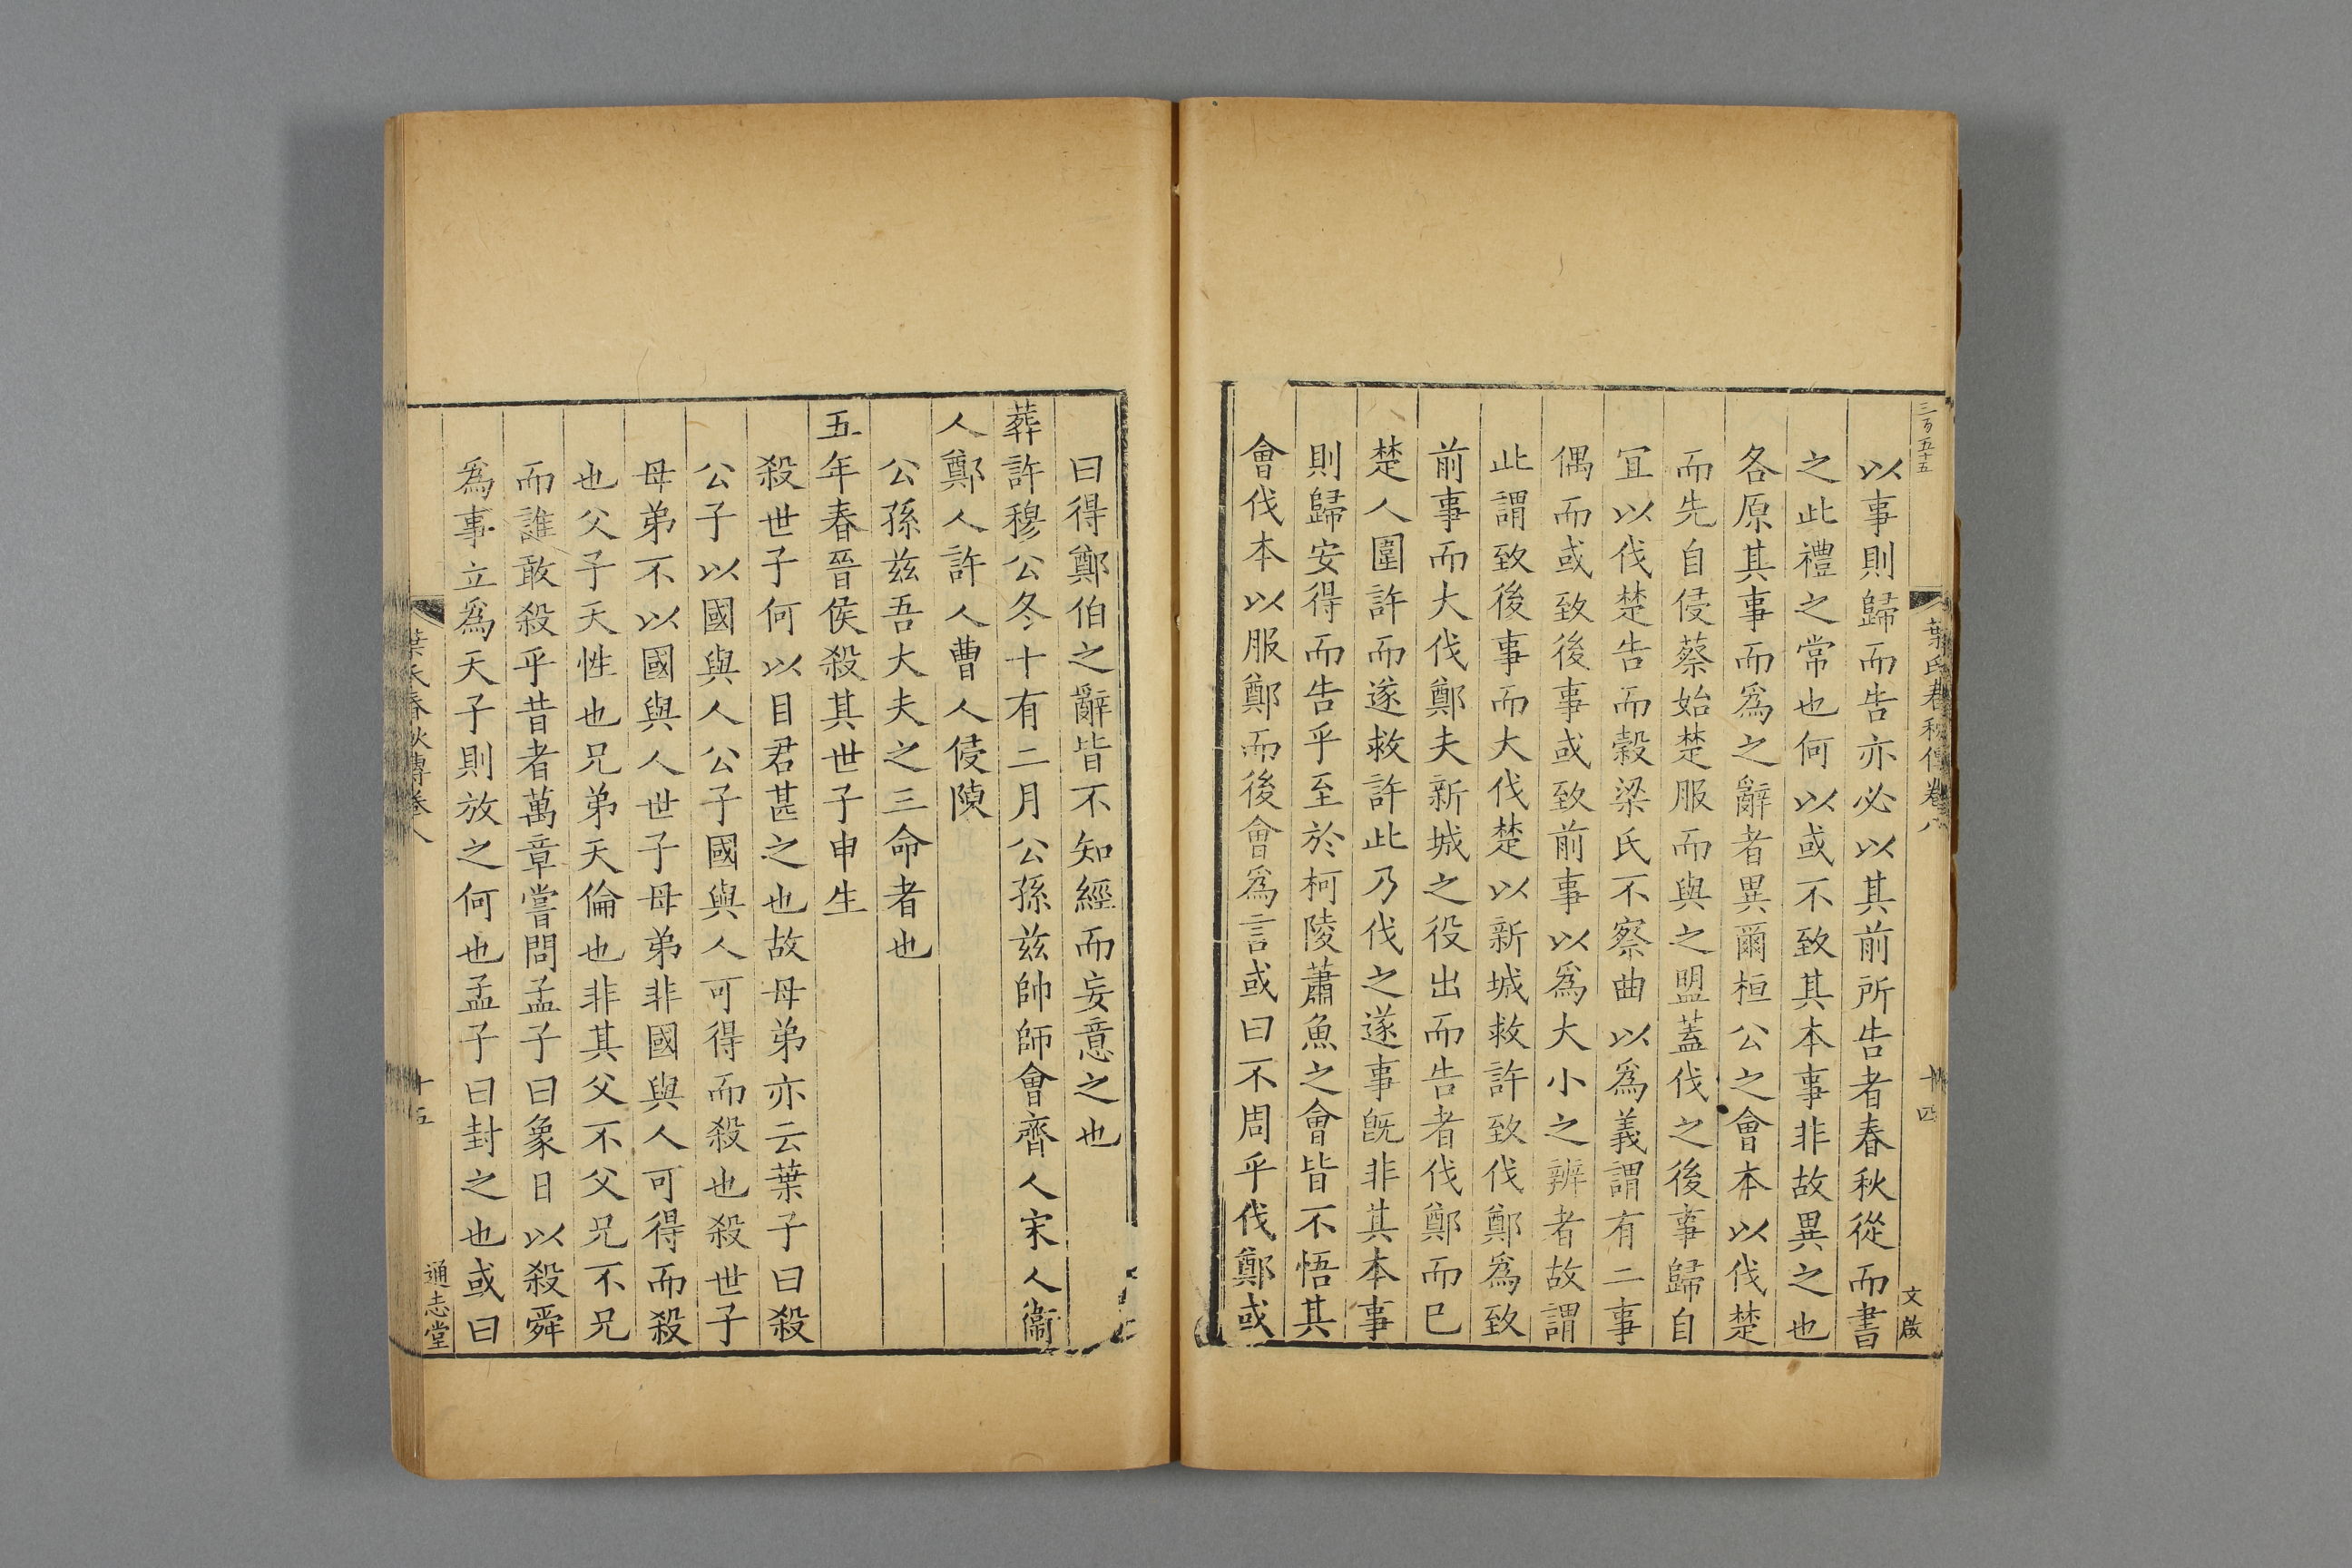 三百五十五
葉氏春秋傳卷八
十四
文啟
以事則歸而告亦必以其前所告者春秋從而書
之此禮之常也何以或不致其本事非故異之也
各原其事而爲之辭者異爾桓公之會本以伐楚
而先自侵蔡始楚服而與之盟蓋伐之後事歸自
宜以伐楚告而穀梁氏不察曲以爲義謂有二事
偶而或致後事或致前事以爲大小之辨者故謂
此謂致後事而大伐楚以新城救許致伐鄭爲致
前事而大伐鄭夫新城之役出而告者伐鄭而巳
楚人圍許而遂救許此乃伐之遂事旣非其本事
則歸安得而告乎至於柯陵蕭魚之會皆不悟其
會伐本以服鄭而後會爲言或曰不周乎伐鄭或
曰得鄭伯之辭皆不知經而妄意之也
葬許穆公冬十有二月公孫兹帥師會齊人宋人衞
人鄭人許人曹人侵陳
公孫兹吾大夫之三命者也
五年春晉侯殺其世子申生
殺世子何以目君甚之也故母弟亦云葉子曰殺
公子以國與人公子國與人可得而殺也殺世子
母弟不以國與人世子母弟非國與人可得而殺
也父子天性也兄弟天倫也非其父不父兄不兄
而誰敢殺乎昔者萬章嘗問孟子曰象日以殺舜
爲事立爲天子則放之何也孟子曰封之也或曰
葉氏春秋傳卷八
十五
通志堂